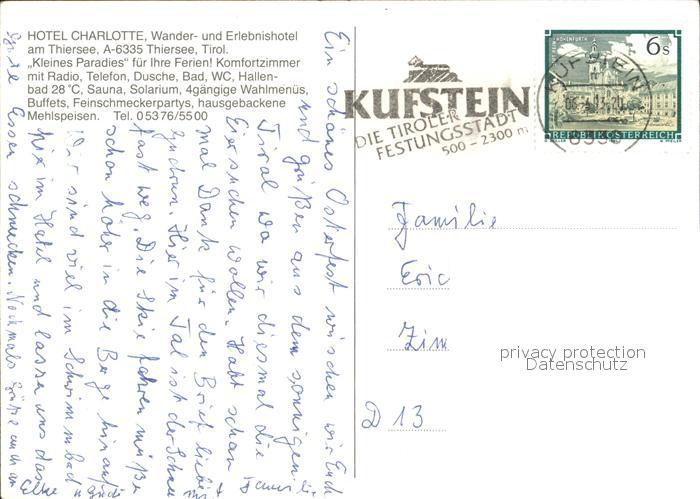 HOTEL CHARLOTTE, Wander- und Erlebnishotel
am Thiersee, A-6335 Thiersee, Tirol.
„Kleines Paradies" für Ihre Ferien! Komfortzimmer
mit Radio, Telefon, Dusche, Bad, WC, Hallen-
bad 28 °C, Sauna, Solarium, 4gängige Wahlmenüs,
Buffets, Feinschmeckerpartys, hausgebackene
Mehlspeisen. Tel. 0 53 76/55 00
KUFSTEIN
DIE TIROLER
FESTUNGSSTADT
500 – 2300 m
KUFSTEIN
6 s
REPUBLIK ÖSTERREICH
Ein schönes Osterfest wünschen wir Euch
und grüßen aus dem sonnigen
Tirol wo wir diesmal die
Eier suchen wollen. Habt schon
mal Dank für den Brief liebe
Hier im Tal ist der Schnee
fast weg. Die Skie fahrer müßen
schon höher in die Berge hinauf
Wir sind viel im Schwimmbad
hier im Hotel und lassen uns das
gute Essen schmecken. Nochmals Grüße auch an
Elke
Familie
Eric
Zim
D 13
privacy protection
Datenschutz